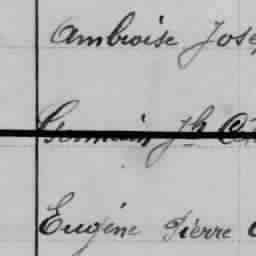 Ambroise Jose
Germain Jh
Eugène Pierre